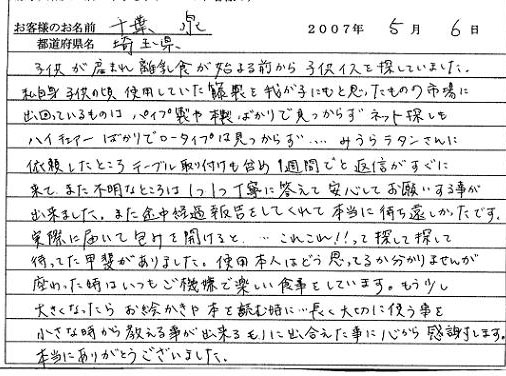 お客様のお名前 千葉 泉 2007年 5月 6日
都道府県名 埼玉県
子供が産まれ離乳食が始まる前から子供イスを探していました。
私自身子供の頃使用していた籐製を我が子にもと思ったものの市場に
出回っているものはパイプ製や木製ばかりで見つからずネット探しも
ハイチェアーばかりでロータイプは見つからず…. みうらラタンさんに
依頼したところテーブル取り付けも含め1週間でと返信がすぐに
来て、また不明なところは1つ1つ丁寧に答えて安心してお願いする事が
出来ました。また途中経過報告をしてくれて本当に待ち遠しかったです。
実際に届いて包みを開けると、…これこれ!!って探して探して
待ってた甲斐がありました。使用本人はどう思ってるか分かりませんが
座わった時はいつもご機嫌で楽しい食事をしています。もう少し
大きくなったらお絵かきや本を読む時に…長く大切に使う事を
小さな時から教える事が出来るものに出合えた事に心から感謝します。
本当にありがとうございました。